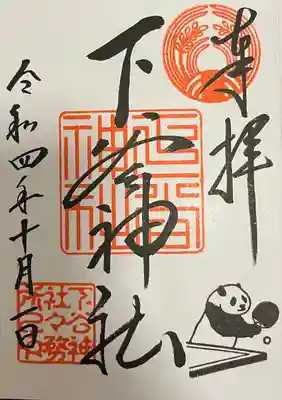 奉拝
下谷神社
下谷神社
令和四年十月一日
下谷神
社々務
所之印